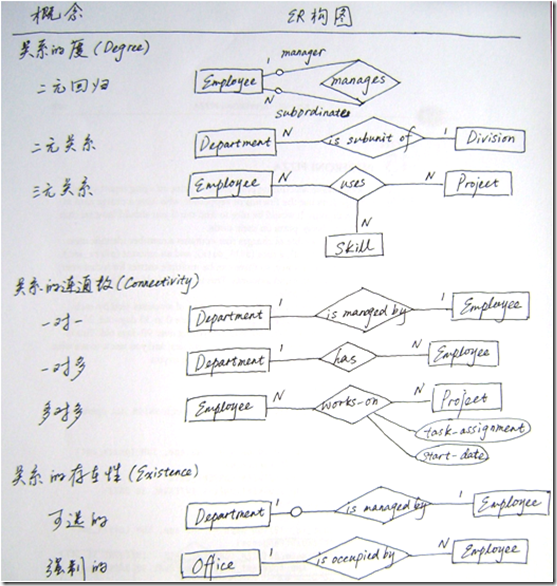 概念 ER构图
关系的度(Degree)
1 manager
二元回归 Employee manages
N
subordinates
二元关系 Department N is subunit of 1 Division
三元关系 Employee N uses N Project
N
Skill
关系的连通数(Connectivity)
一对一 Department 1 is managed by 1 Employee
一对多 Department 1 has N Employee
多对多 Employee N works-on N Project
task-assignment
start-date
关系的存在性(Existence)
可选的 Department 1 is managed by 1 Employee
强制的 Office 1 is occupied by N Employee